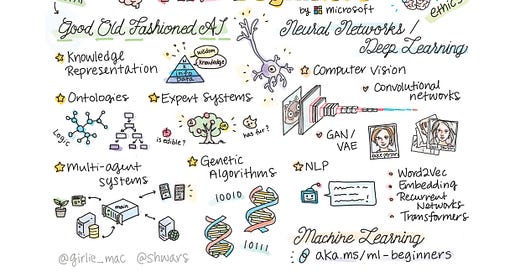 by microsoft
ethics
Good Old Fashioned AI
Knowledge
Representation
wisdom
Knowledge
info
Data
Ontologies
Logic
Expert Systems
is edible?
has fur?
Multi-agent
systems
main
Genetic
Algorithms
10010
10111
@girlie_mac @shwars
Neural Networks /
Deep Learning
Computer Vision
Convolutional
networks
GAN/
VAE
fake person
NLP
Word2Vec
Embedding
Recurrent
Networks
Transformers
Machine Learning
aka.ms/ml-beginners